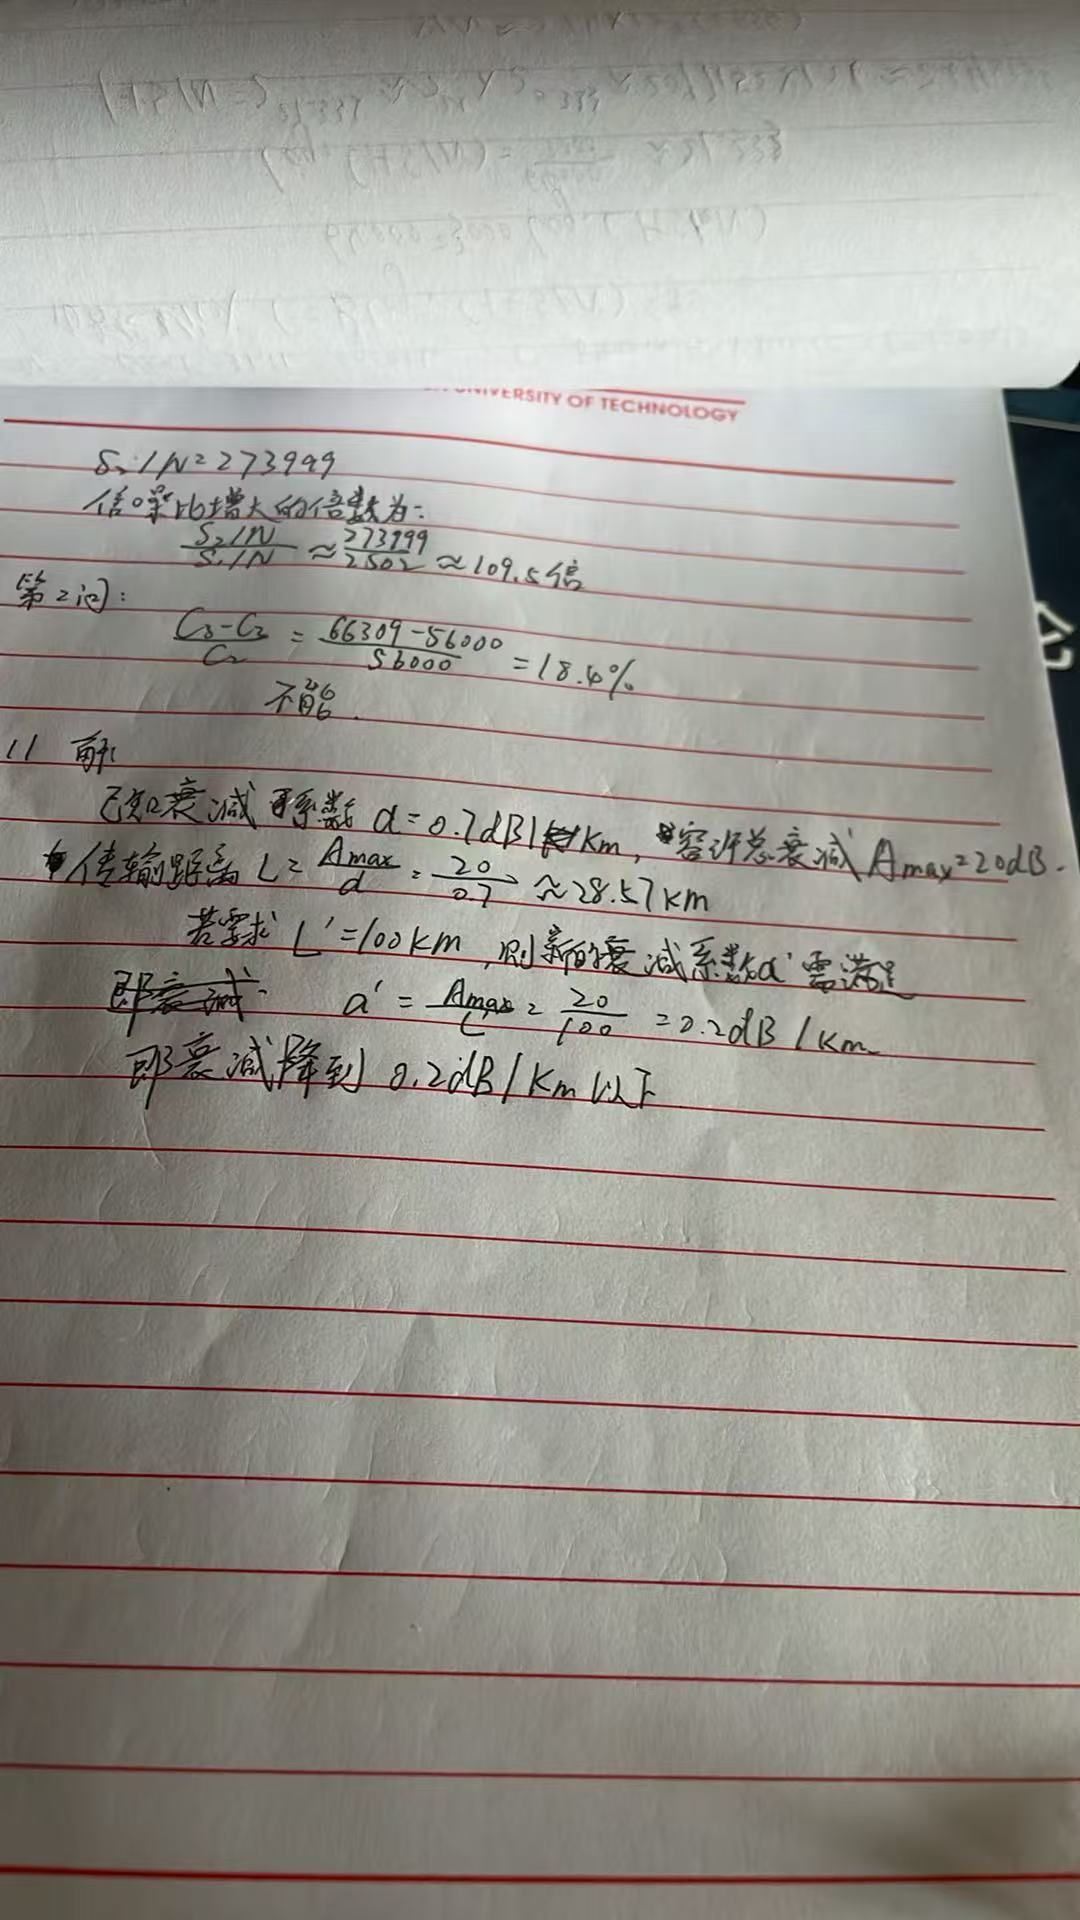 UNIVERSITY OF TECHNOLOGY
S₂/N=273999
信噪比增大的倍数为:
S₂/N / S₁/N ≈ 273999 / 2502 ≈ 109.5倍
第2问:
C₃-C₂ / C₂ = 66309-56000 / 56000 = 18.4%
不能.
11 解:
已知衰减系数 α=0.7dB/Km, 容许总衰减 Amax=20dB.
传输距离 L = Amax / α = 20 / 0.7 ≈ 28.57km
若要求 L'=100km, 则新的衰减系数α'需满足
即衰减 α' = Amax / L' = 20 / 100 = 0.2dB/Km
即衰减降到 0.2dB/Km 以下